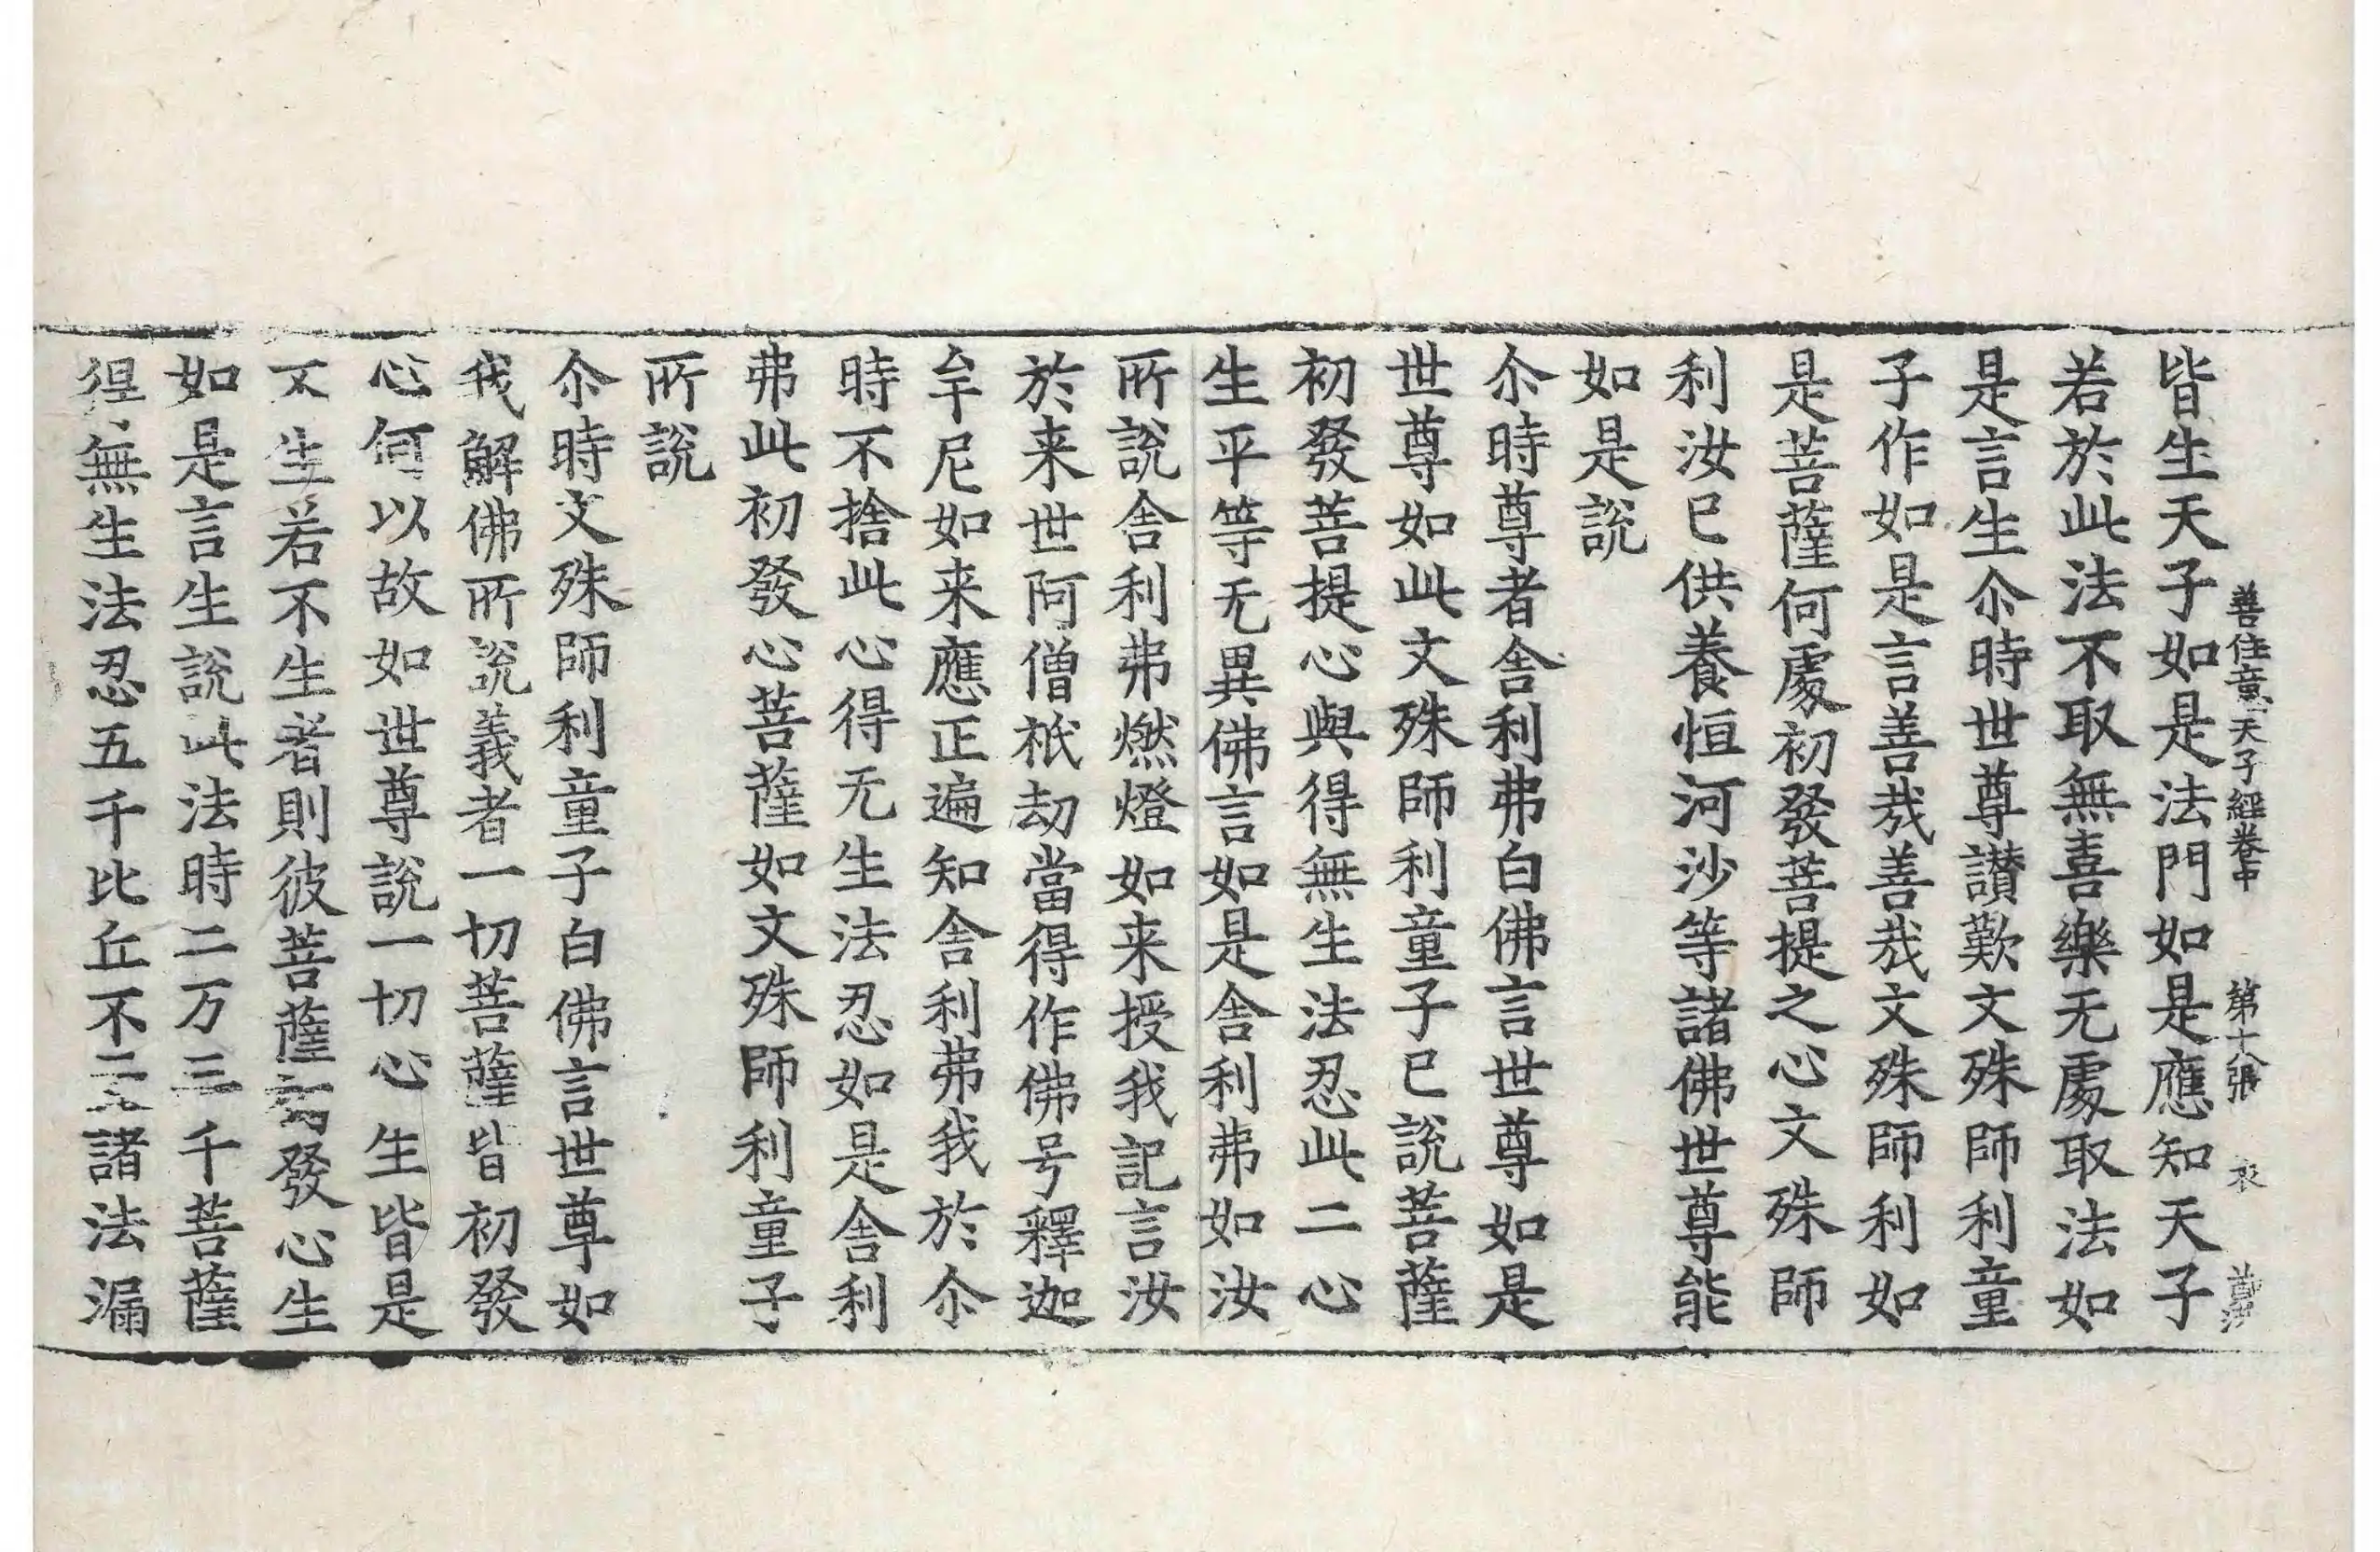 善住意天子經卷中　第十八張　衣
皆生天子如是法門如是應知天子
若於此法不取無喜樂无處取法如
是言生尒時世尊讃歎文殊師利童
子作如是言善㢤善㢤文殊師利如
是菩薩何處初發菩提之心文殊師
利汝已供養恒河沙等諸佛世尊能
如是說
尒時尊者舎利弗白佛言世尊如是
世尊如此文殊師利童子已說菩薩
初發菩提心與得無生法忍此二心
生平等无異佛言如是舎利弗如汝
所說舎利弗燃燈如来授我記言汝
於来世阿僧祇劫當得作佛号釋迦
牟尼如来應正遍知舎利弗我於尒
時不捨此心得无生法忍如是舎利
弗此初發心菩薩如文殊師利童子
所說
尒時文殊師利童子白佛言世尊如
我解佛所說義者一切菩薩皆初發
心何以故如世尊說一切心生皆是
不生若不生者則彼菩薩初發心生
如是言生說此法時二万三千菩薩
得無生法忍五千比丘不諸法漏